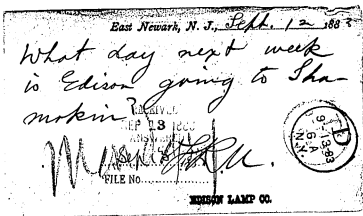 East Newark, N. J., Sept. 12 1883
What day next week
is Edison going to Sha-
mokin?
RECEIVED
SEP 13 1883
ANSWERED
Sep
FILE NO.
D
9-13-83
6 A
N.Y.
EDISON LAMP CO.